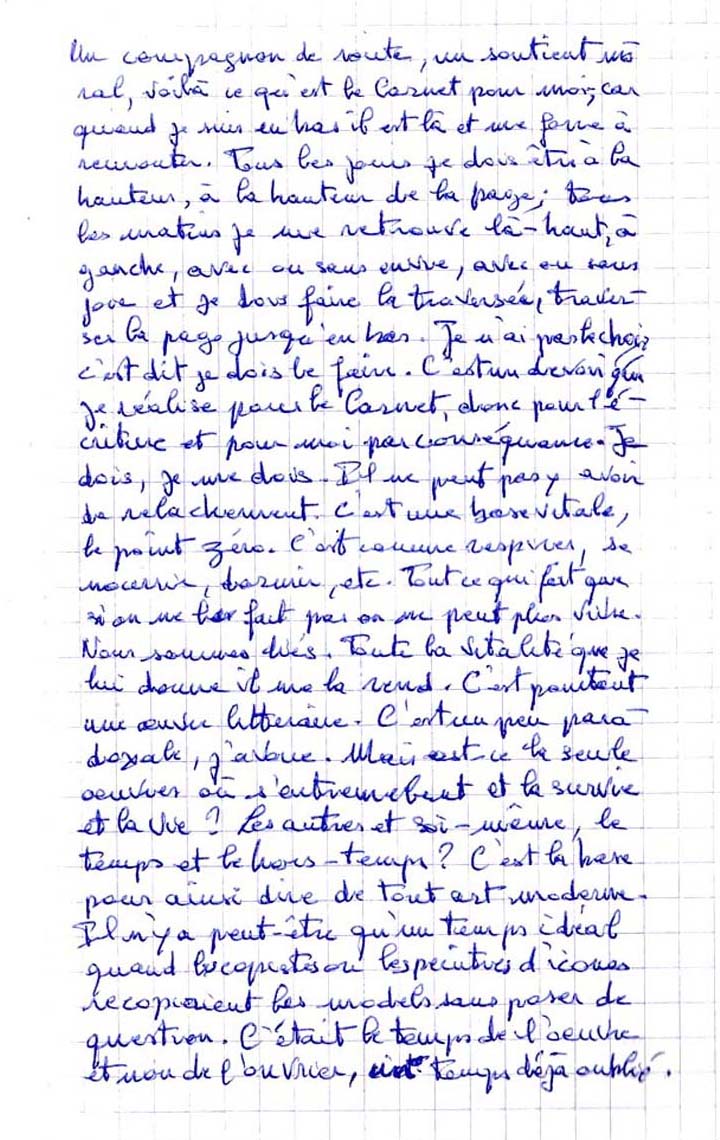 Un compagnon de route, un soutient mo
ral, voilà ce qu'est le Carnet pour moi, car
quand je suis en bas il est là et me force à
remonter. Tous les jours je dois être à la
hauteur, à la hauteur de la page; tous
les matins je me retrouve là-haut, à
gauche, avec ou sans envie, avec ou sans
joie et je dois faire la traversée, traver-
ser la page jusqu'en bas. Je n'ai pas le choix
c'est dit je dois le faire. C'est un devoir que
je réalise pour le Carnet, donc pour l'é-
criture et pour moi par conséquance. Je
dois, je me dois. Il ne peut pas y avoir
de relachement. C'est une base vitale,
le point zéro. C'est comme respirer, se
nourrir, dormir, etc. Tout ce qui fait que
si on ne le fait pas on ne peut plus vivre.
Nous sommes liés. Toute la vitalité que je
lui donne il me la rend. C'est pourtant
une œuvre litteraire. C'est un peu para-
doxale, j'avoue. Mais est-ce la seule
oeuvres où s'entremelent et la survie
et la vie ? Les autres et soi-même, le
temps et le hors-temps ? C'est la base
pour ainsi dire de tout art moderne.
Il n'y a peut-être qu'un temps idéal
quand les copistes ou les peintres d'icones
recopiaient les models sans poser de
question. C'était le temps de l'oeuvre
et non de l'ouvrier, temps déjà oublié.